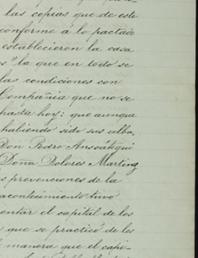 las copias que de este
conforme á lo pactado
establecieron la casa
s" la que en todo se
las condiciones con
Compañia que no se
hasta hoy; que aunque
habiendo sido sus
Don Pedro
Doña Dolores Martinz
s prevenciones de la
acontecimiento tuvo
entar el capital de los
s que se practicó de los
manera que el capi-